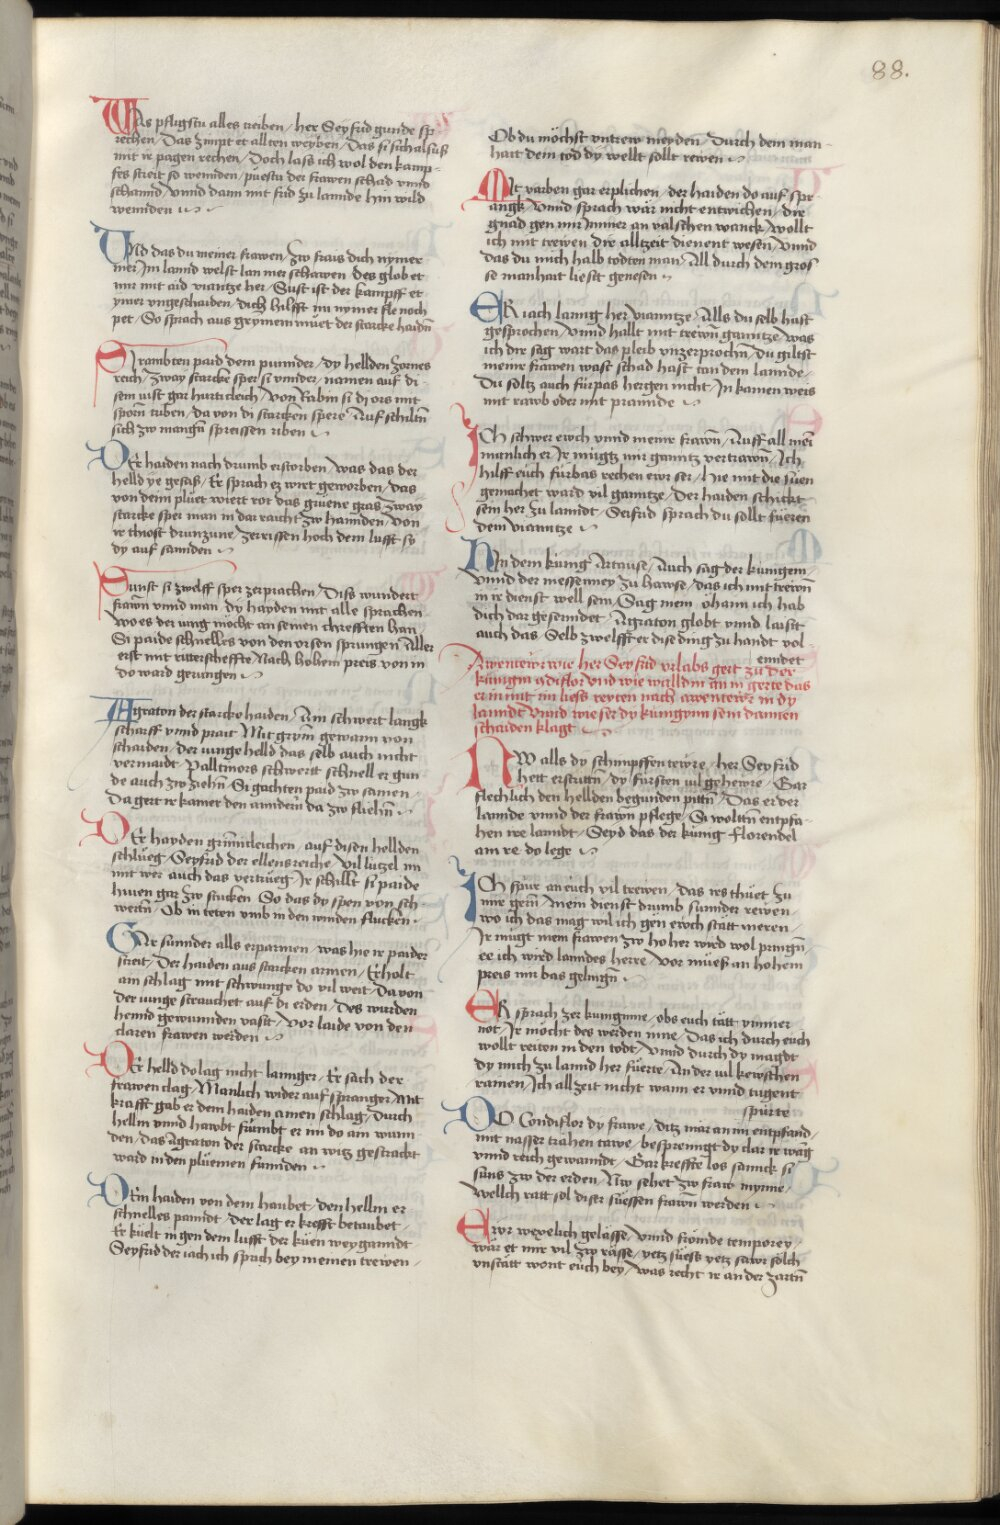 88.
Was pfligstu alles treiben / her Seyfrid gunde sp
rechen / Das zimpt et allten weyben / Das si sich alsuß
mit ir pagen rechen / Doch lass ich wol den kampf=
fes streit so wennden / puestu der frawen schad vnnd
schannd / vnnd dann mit frid zu lannde hin wild
wennden
Vnd das du meiner frawen / Zw frais dich nymer
mer / Im lannd welst lan mer schawen des glob et
mir mit aid viantze her / Sust ist der kampff et
ymer vngeschaiden / dich hilfft nu nymer fle noch
pet / So sprach aus grymem muet der starcke haidn
Si rambten paid dem puinder / dy hellden zornes
reich / Zway starcke sper si vnnder / namen auf di=
sem iust gar hurticleich / Von Rabin si di ors mit
sporn triben / da von di starcken spere / Auf schiltn
sich zw mangn spreissen riben
Der haiden nach drumb erstorben / was das der
helld ye gesaß / Er sprach ez wirt geworben / das
von deim pluet wiert rot das gruene gras / zway
starcke sper man in dar raicht zw hannden / von
ir thiost drunzune / zerrissen hoch dem lufft so
dy auf sannden
Sunst si zwelff sper zerprachen / Diss wundert
frawn vnnd man / dy hayden mit alle sprachen
wo es der iung mocht an seinen chrefften han
Si paide schnelles von den orsen sprungen / Aller
erst mit ritterscheffte / Nach hohem preis von in
do ward gerungen
Agraton der starcke haiden / Ain schwert langk
scharff vnnd prait / Mit grym gewann von
schaiden / der iunge helld das selb auch nicht
vermaidt / Palltmors schwertt schnell er gun
de auch zw ziehn / Si gachten paid zw samen /
Da gert ir kainer den anndern da zw fliehn
Der hayden grimicleichen / auf disen hellden
schlueg / Seyfrid der ellensreiche / vil lutzel im
mit wer auch das vertrueg / Ir schillt si paide
hiuen gar zw stucken / So das dy spen von sch=
wertn / Ob in teten vmb in den winden flucken
Gar sunnder alls erparmen / was hie ir paider
streit / Der haiden aus starcken armen / Er holt
ain schlag mit schwunge do vil weit / Da von
der iunge strauchet auf di erden / Des wurden
hennd gewunnden vasst / vor laide von den
claren frawen werden
Der helld do lag nicht lannger / Er sach der
frawen clag / Manlich wider auf sprang er / Mit
krafft gab er dem haiden ainen schlag / Durch
hellm vnnd hawbt frumbt er im do ain wunn
den / das Agraton der starcke an witz gestrackt
ward in den pluemen funnden
Dem haiden von dem haubet / den hellm er
schnelles panndt / der lag er krefft betaubet /
Er kuelt in gen dem lufft der kuen weygannndt
Seyfrid der iach ich sprich bey meinen trewen /
Ob du mochst vntrew meyden / Durch dein man=
hait dein tod dy wellt sollt rewen
Mit varben gar erplichen / der haiden do auf spr=
angk / vnnd sprach wär nicht entwichen / dir
gnad gen mir / Nimer an valschen wanck / wollt
ich mit trewen dir alltzeit dienent wesen / vnnd
das du mich halb todten man / All durch dein gros
se manhait liesst genesen
Er iach lanng her vianntze / Alls du selb hast
gesprochen / vnnd hallt mit trewn ganntze / was
ich dir sag wart das pleib vnzerprochn / Du giltst
meiner frawen wast schad hast tan dem lannde /
Du soltz auch fürpas hergen nicht / In kainen weis
mit rawb oder mit prannde
Ich schwer ewch vnnd meiner frawn / Auff all mein
manlich er / Ir mugtz mir ganntz vertrawn / Ich
hilff euch furbas rechen ewr ser / Hie mit die suen
gemachet ward vil ganntze / Der haiden schickt
sein her zu lanndt / Seifrid sprach du sollt fueren
dein vianntze
Hin dem kung Artause / Auch sag der kunigein
vnnd der messenney zu hawse / das ich mit trewn
in ir dienst well sein / Sag mein öhaim ich hab
dich dar gesenndet / Agraton globt vnnd laisst
auch das / Selb zwelfft er dise ding zu handt vol=
enndet
Awentewr wie her Seyfrid vrlabs gert zu der
kunigin Condiflor vnd wie walldin an in gerte das
er in mit im liess reyten nach awentewr in dy
lanndt vnnd wie ser dy kunigynn sein dannen
schaiden klagt
Nw alls dy schimpffentewre / her Seyfrid
hett erstritn / dy fursten vil gehewre / Gar
flechlich den hellden begunden pittn / Das er der
lannde vnnd der frawn pflege / Si wolltn entpfa=
hen ire lanndt / Seyd das der kunig Florendel
am re do lege
Ich spur an euch vil trewen / das irs thuet zu
mir gern / mein dienst drumb sunnder rewen /
wo ich das mag wil ich gen ewch statt meren /
Ir mugt mein frawen zw ho her wird wol pringn
ee ich wird lanndes herre / vor mueß an hohem
preis mir bas gelingn
Er sprach zer kuniginne / obs euch tätt ymmer
not / Ir mocht des werden inne / Das ich durch euch
wollt reiten in den todt / Vnnd durch dy magdt
dy mich zu lannd her fuerte / An der vil kewschen
rainen / Ich all zeit nicht wann er vnnd tugent
spurte
Do Condiflor dy frawe / ditz mär an im entpfand /
mit nasser trahen tawe / besprenngt dy clar ir wang
vnnd reich gewanndt / Gar kreffte los sannck si
suns zw der erden / Nw sehet zw fraw mynne /
Wellch ratt sol diser suessen frawn werden
Ewr weyelich gelässe / vnnd frömde temporey /
wär et mir vil zw rässe / yetz suess yetz sawr sölch
vnstätt wont euch bey / was recht ir an der zartn